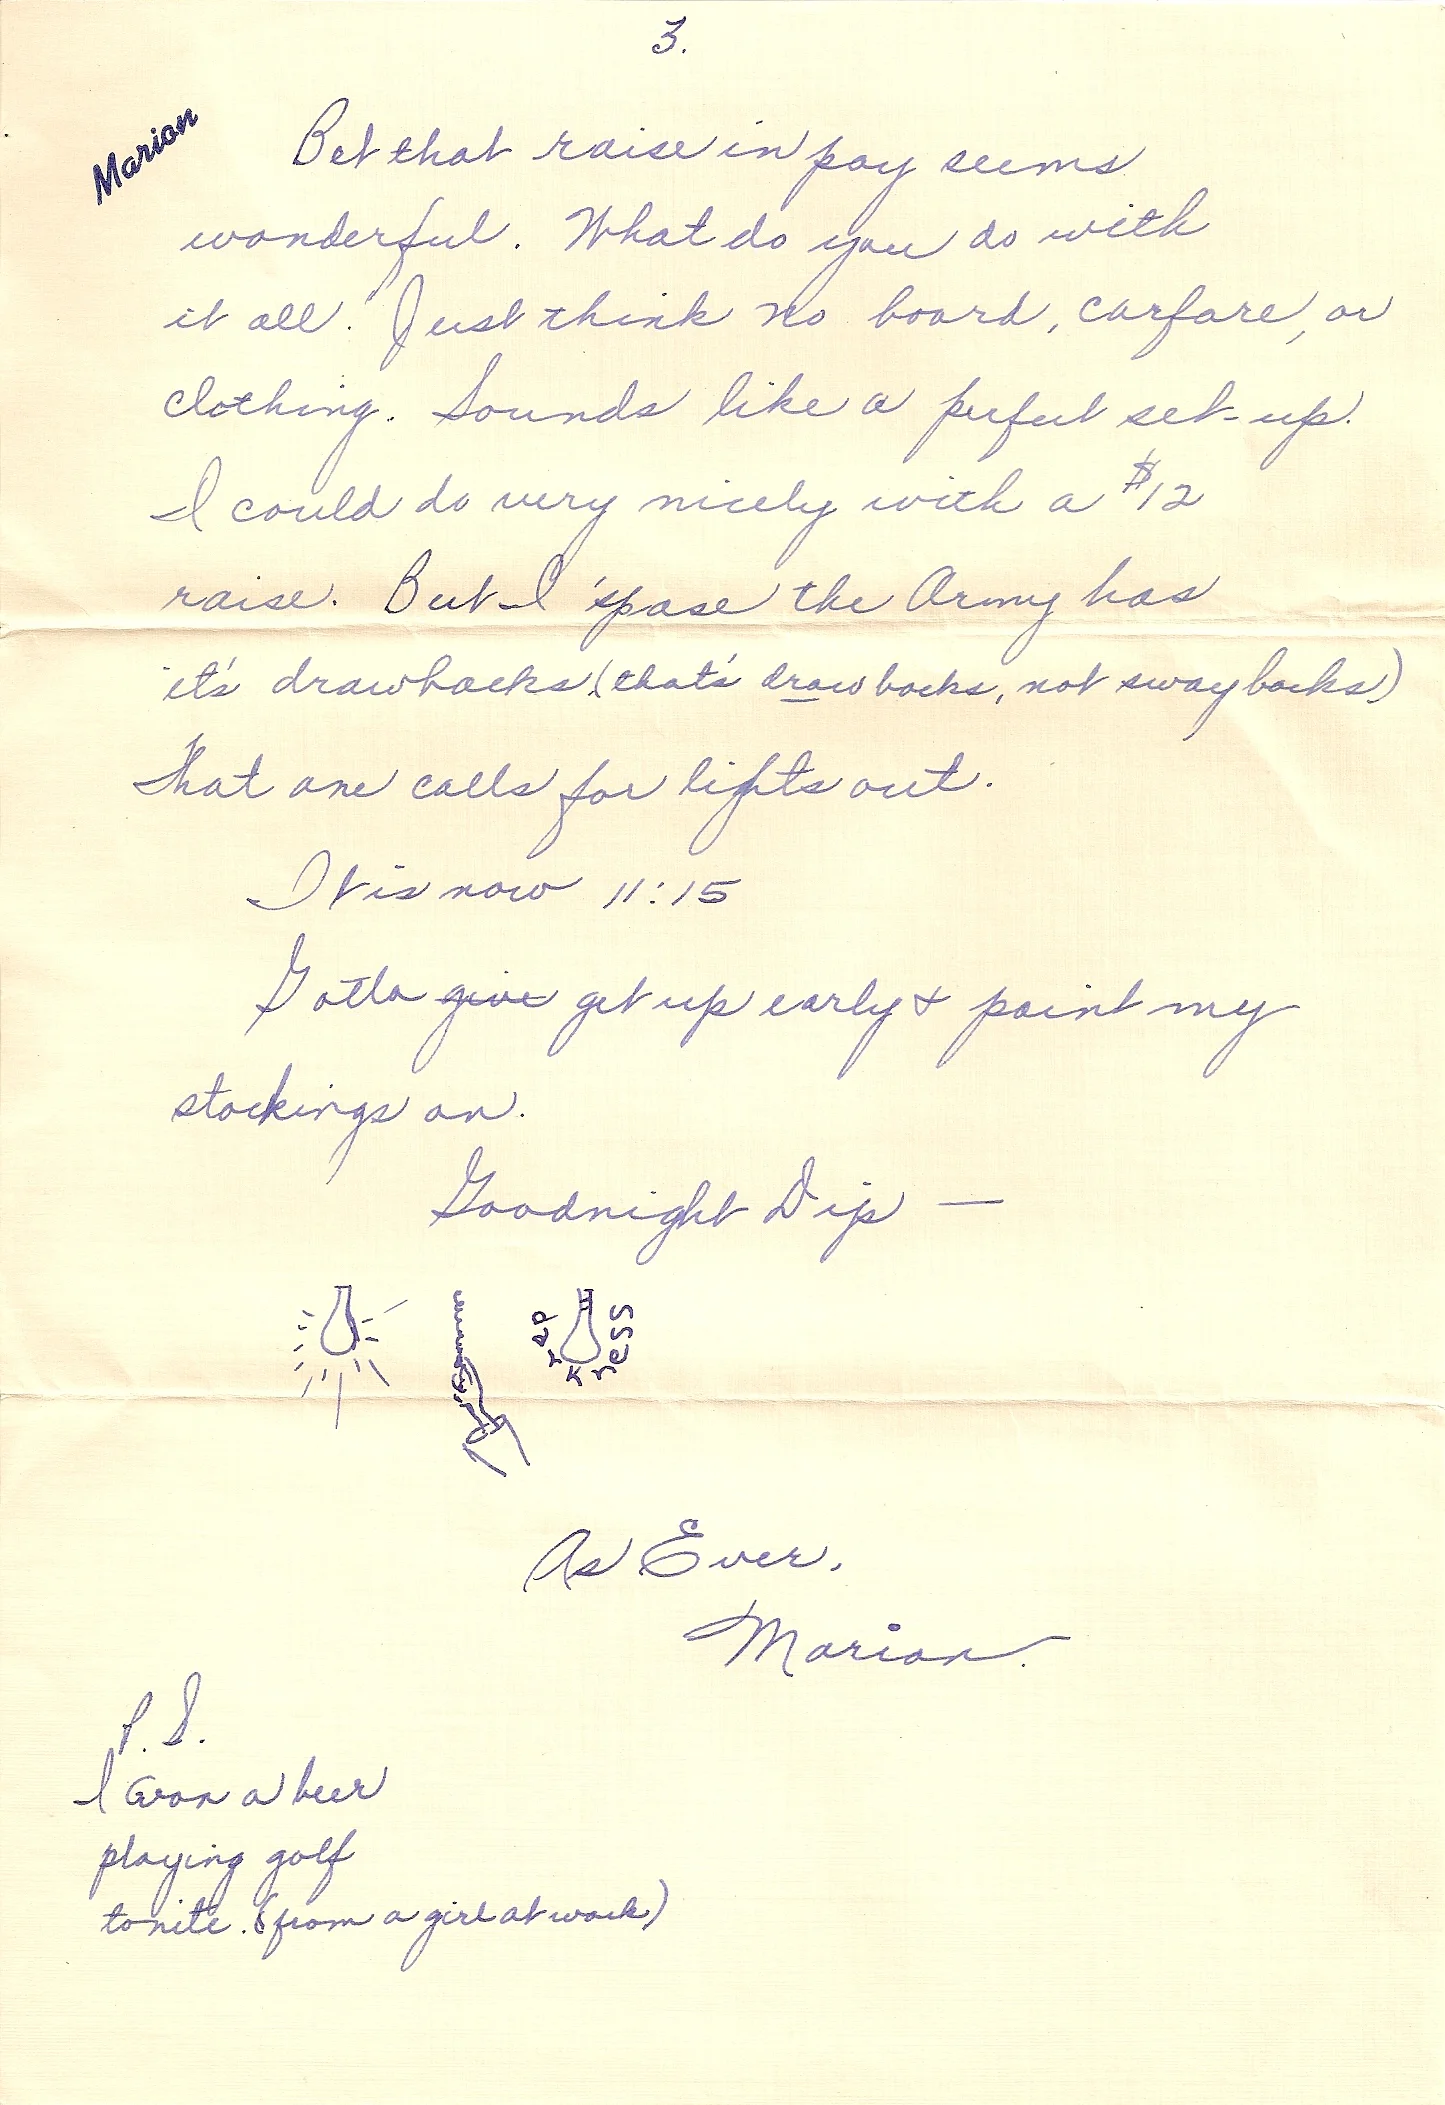 3.
Marion
Bet that raise in pay seems
wonderful. What do you do with
it all. Just think no board, carfare, or
clothing. Sounds like a perfect set-up.
I could do very nicely with a $12
raise. But I 'spose the Army has
it's drawbacks (that's drawbacks, not swaybacks)
That one calls for lights out.
It is now 11:15
Gotta give get up early & paint my
stockings on.
Goodnight Dip —
darkness
As Ever,
Marion.
P.S.
I won a beer
playing golf
tonite. (from a girl at work)